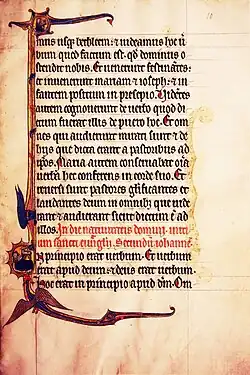 eamus usq; bethleem: & uideamus hoc u
bum quod factum est. qd dominus o
stendit nobis. Et uenerunt festinantes:
& inuenerunt mariam & ioseph: & in
fantem positum in presepio. Videntes
autem cognouerunt de uerbo quod dic
tum fuerat illis de puero hoc. Et om
nes qui audierunt mirati sunt & de
hijs que dicta erant a pastoribus ad
ipsos. Maria autem conseruabat omia
uerba hec conferens in corde suo. Et re
uersi sunt pastores glificantes &
laudantes deum in omnibz que uide
rant & audierant sicut dictum e ad
illos. In die natiuitatis domini. inici
um sancti euuglij. Secundu iohanne
In principio erat uerbum. Et uerbum
erat apud deum: & deus erat uerbum.
Hoc erat in principio apud dm. Om